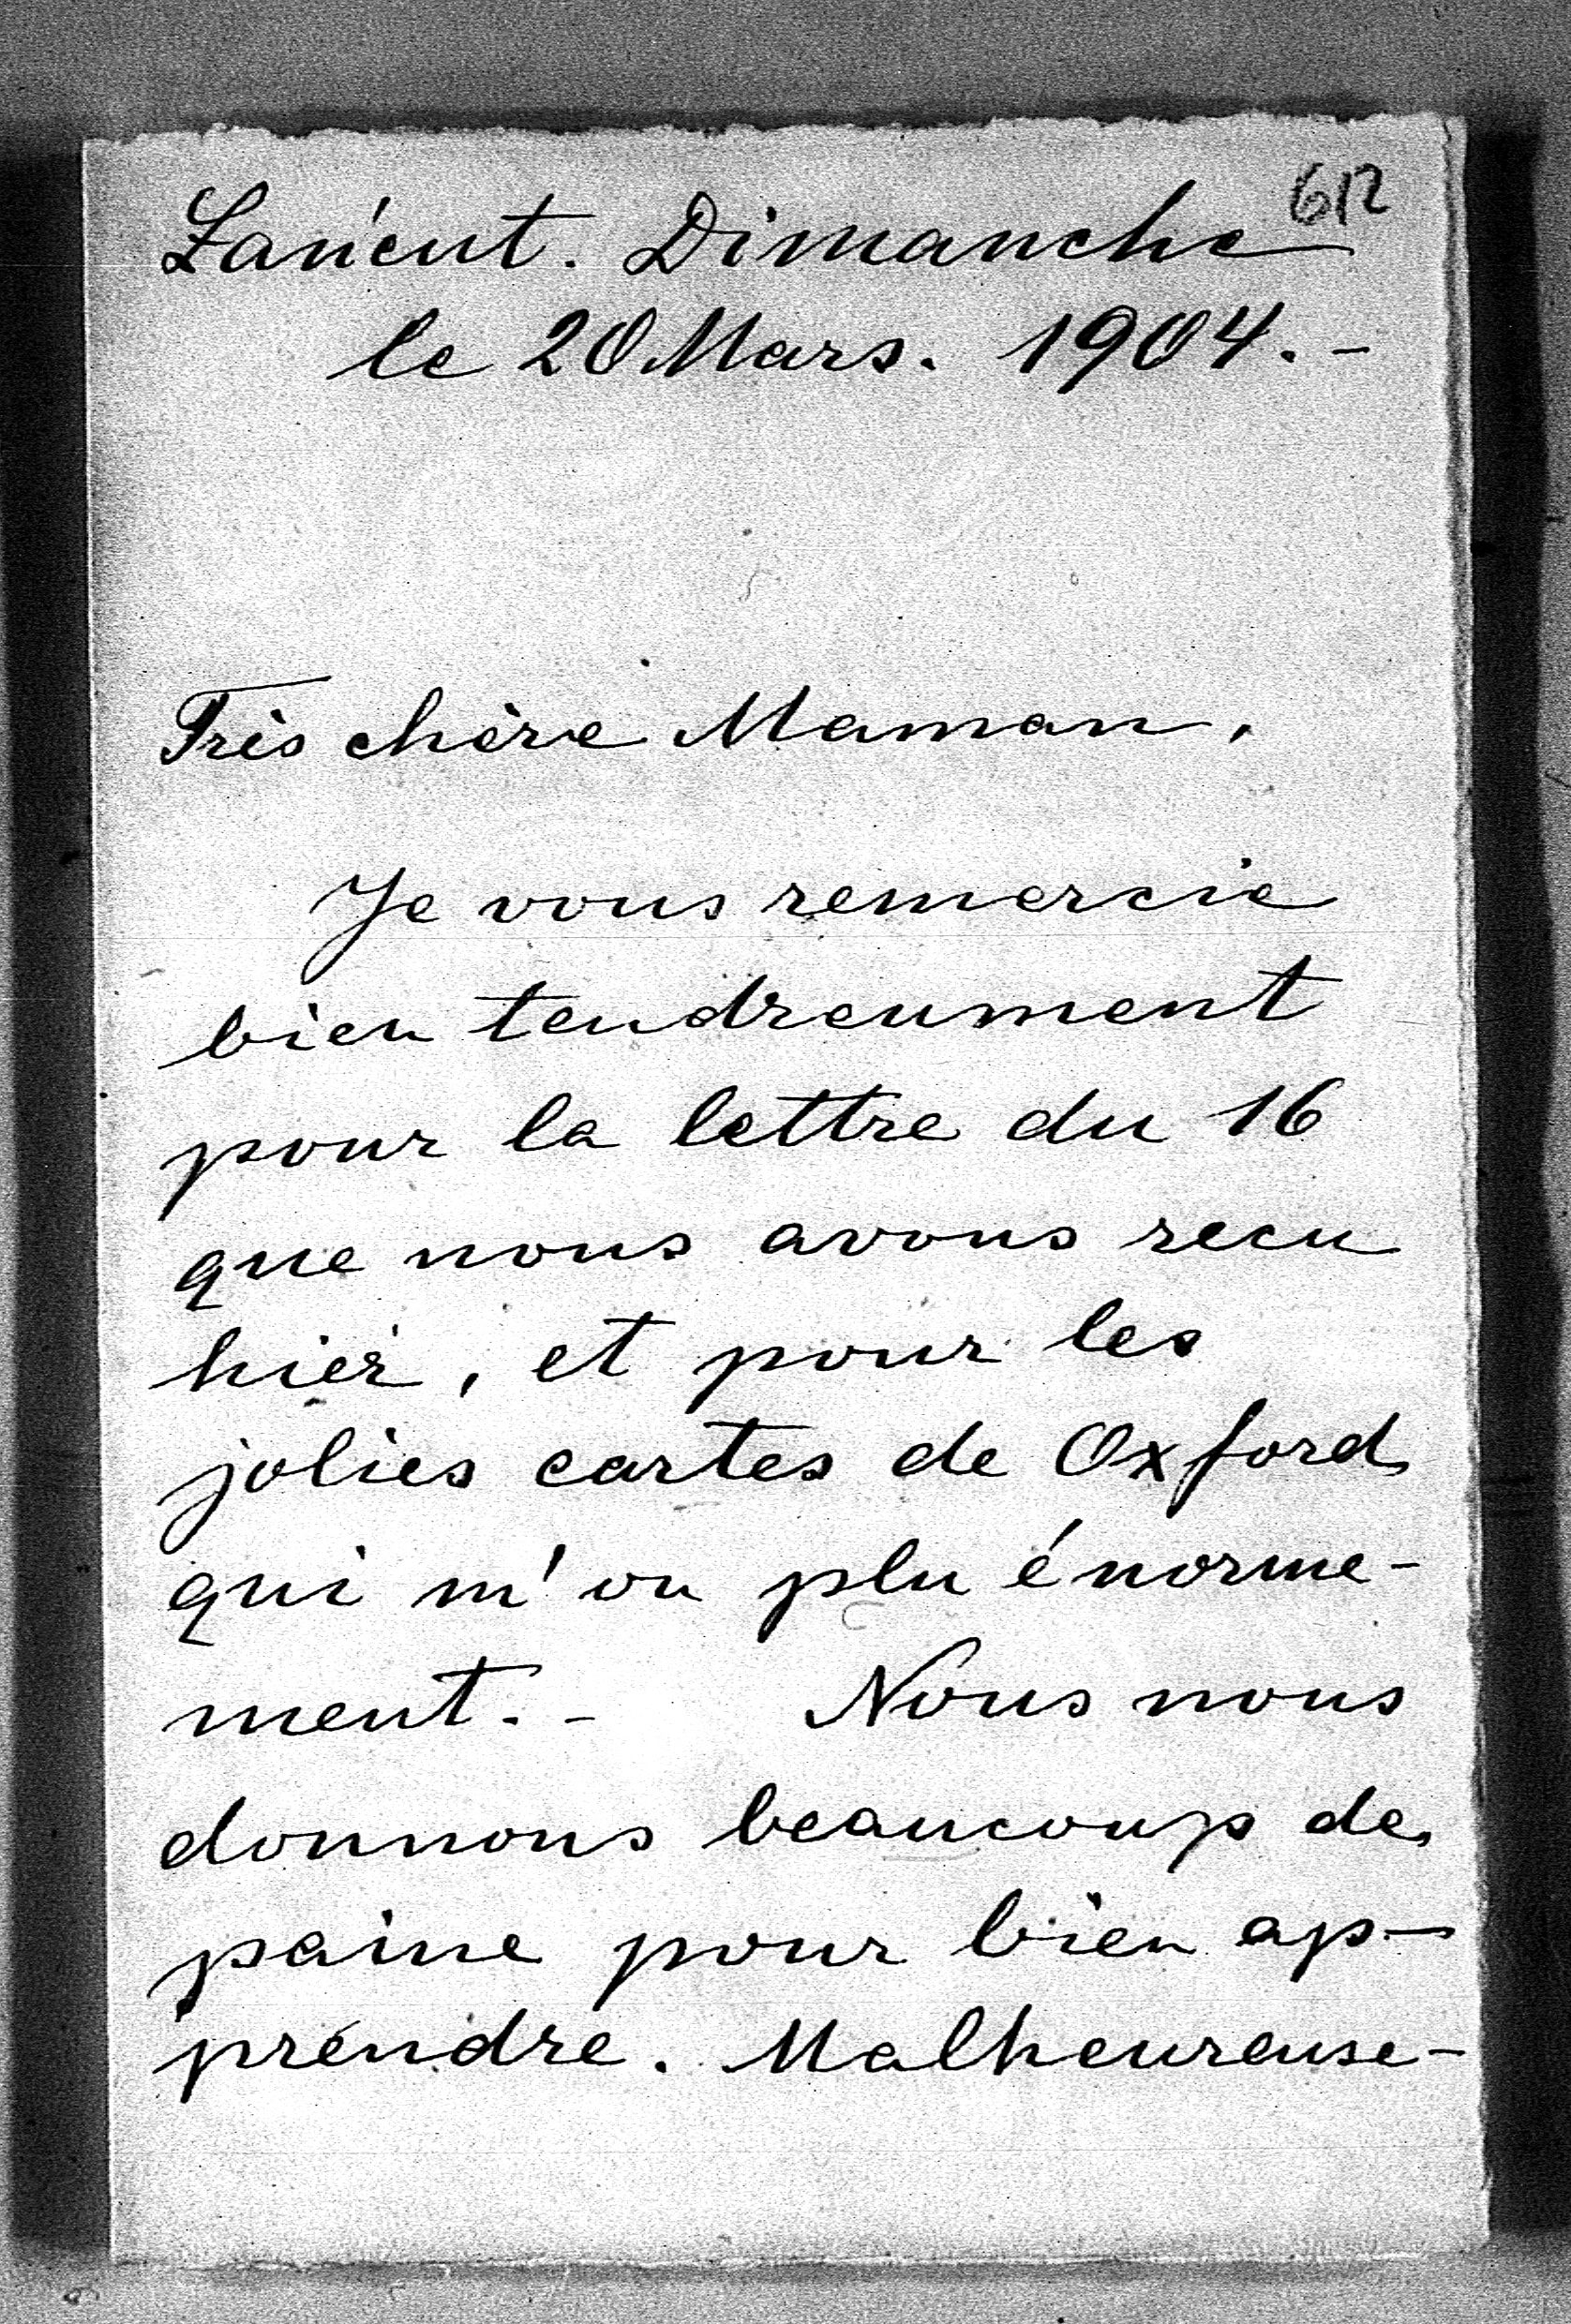 612
Łańcut. Dimanche
le 20 Mars. 1904.-
Très chère Maman,
Je vous remercie
bien tendreument
pour la lettre du 16
que nous avons recu
hier, et pour les
jolies cartes de Oxford
qui m'on plu énorme-
ment.- Nous nous
donnons beaucoup de
paine pour bien ap-
prendre. Malheureuse-